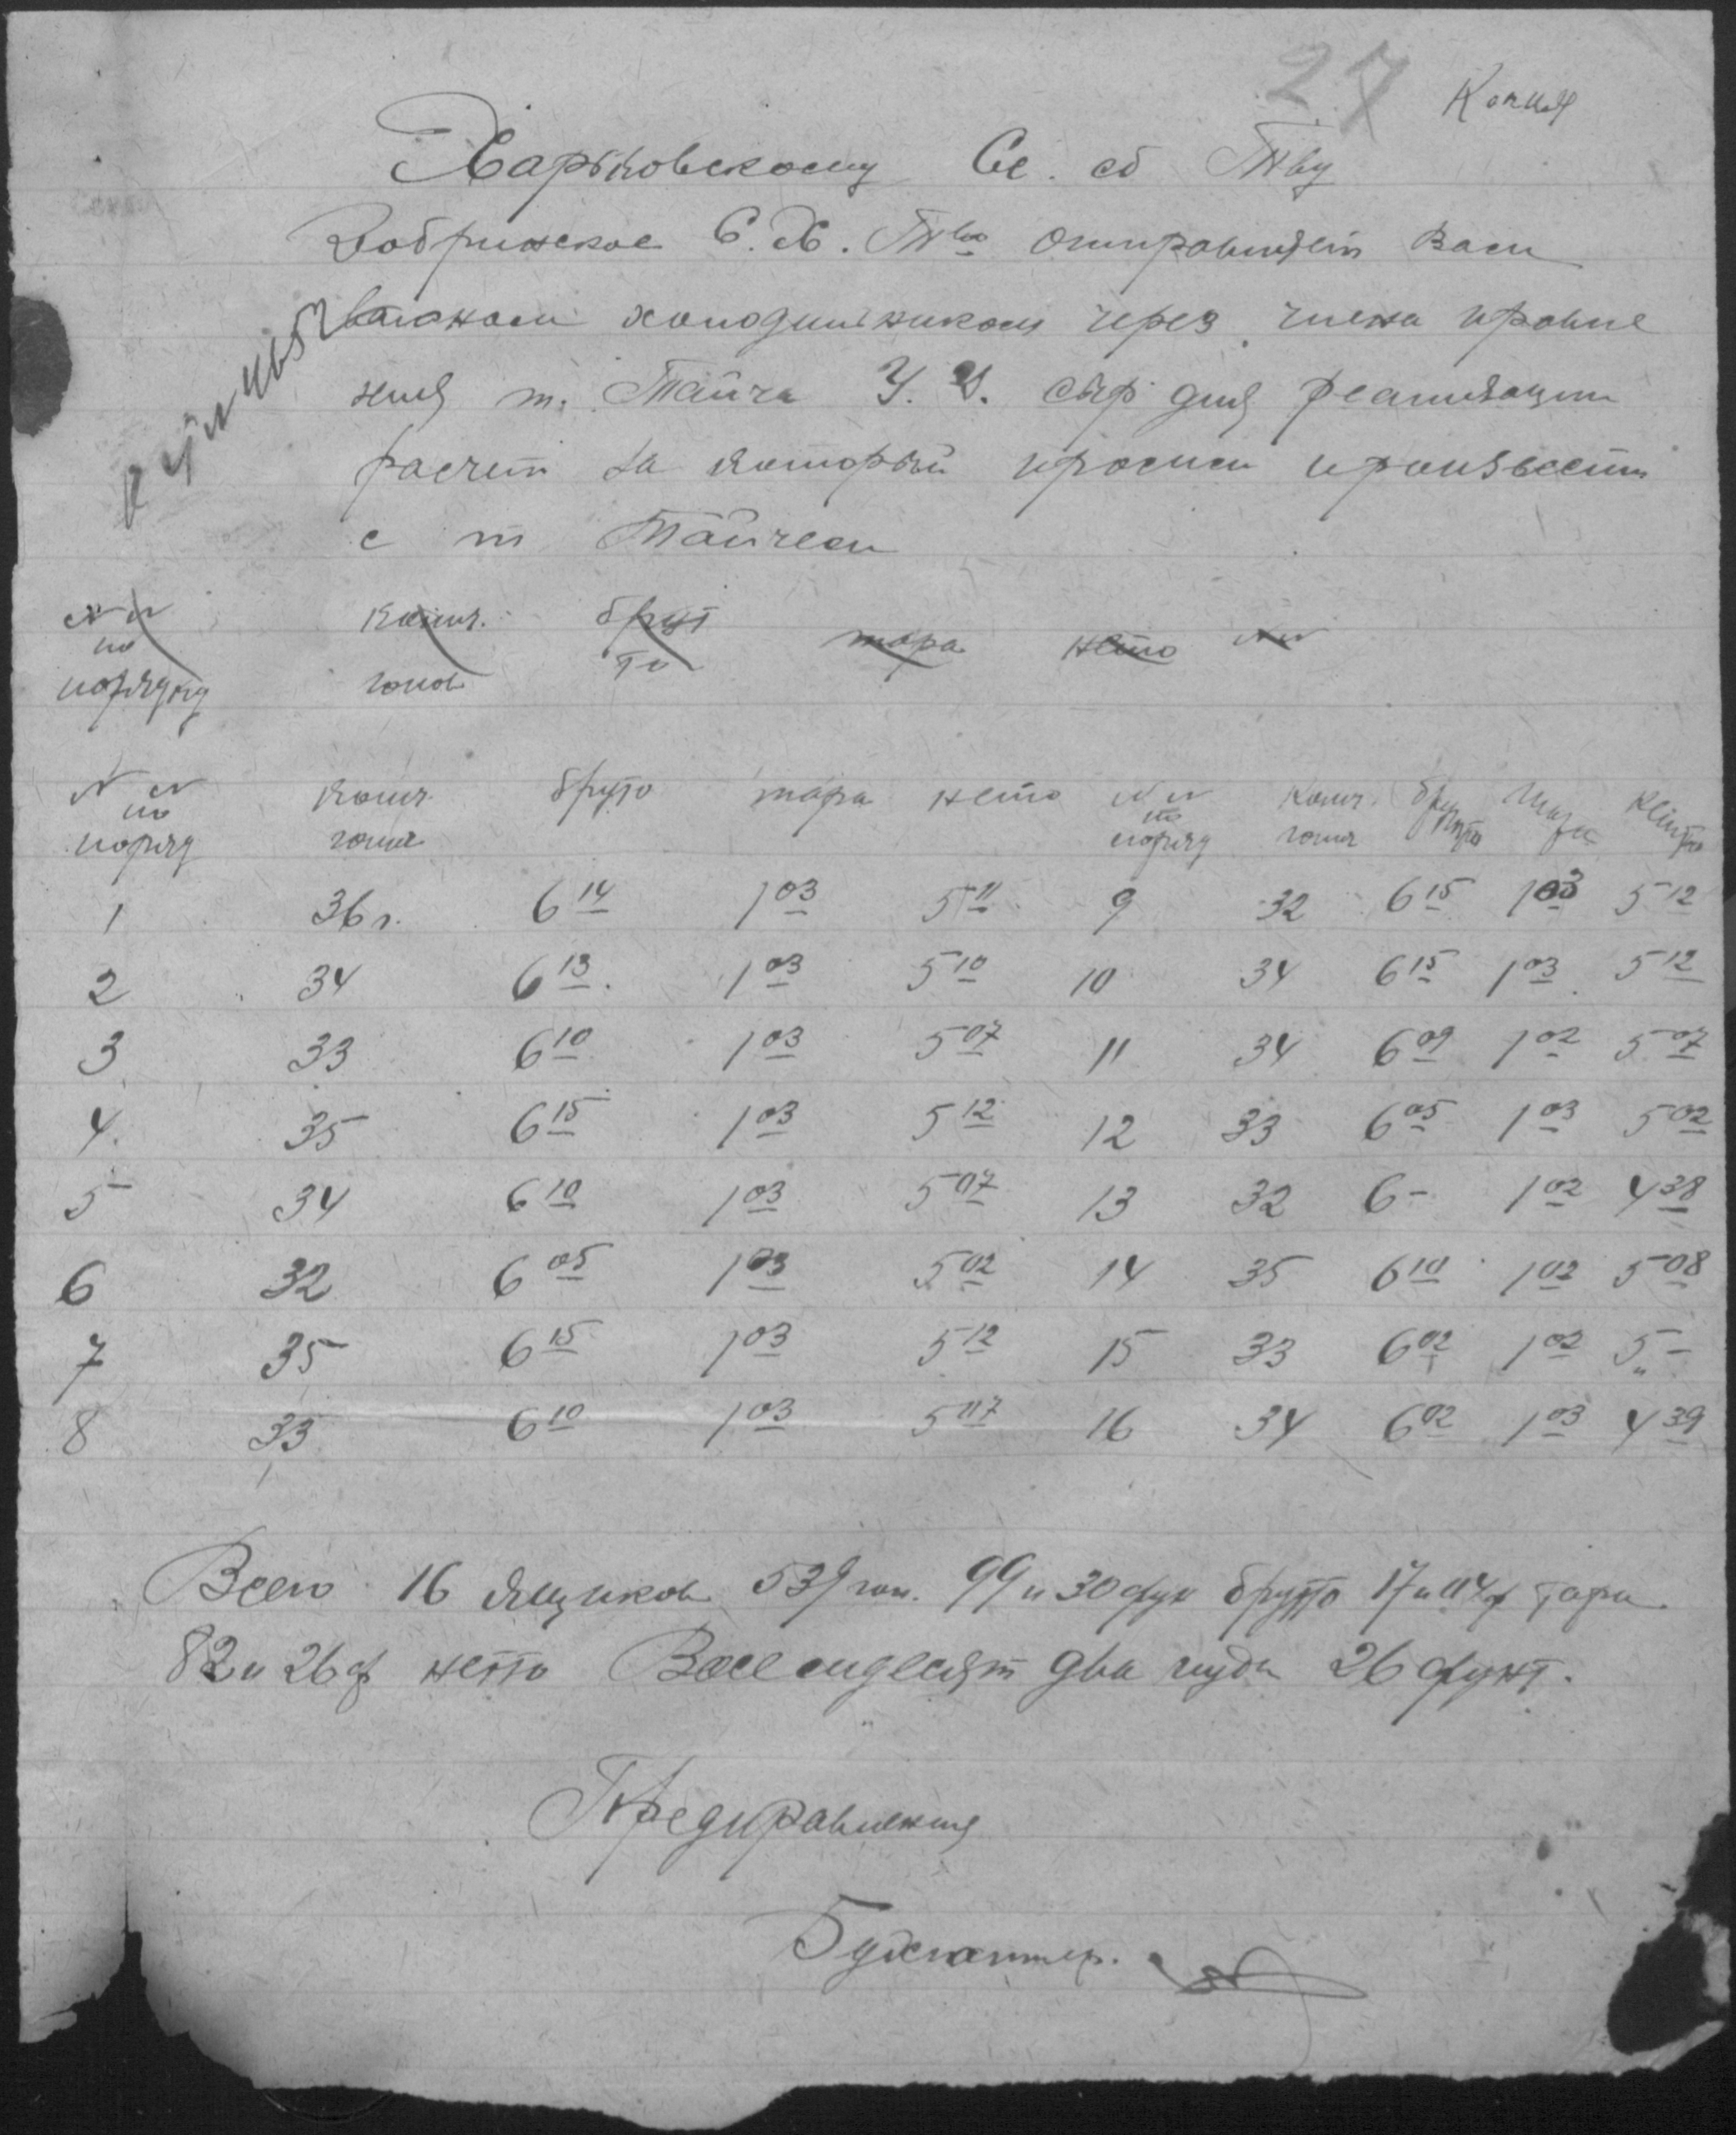 27 Копия
Харьковскому Се. сб Тву
Добринское С.Х. Тво отправляет Вам
вагоном холодильником через члена правле
ния т. Тайча У. И. сыр для реализации
расчет за который просим произвести
с т Тайчем
NN по порядку Колич. голов брутто тара нето NN
NN по поряд колич голов бруто тара нето NN по поряд Колич голов брутто тара нетто
1 36 г. 6 14 1 03 5 11 9 32 6 15 1 03 5 12
2 34 6 13 1 03 5 10 10 34 6 15 1 03 5 12
3 33 6 10 1 03 5 07 11 34 6 09 1 02 5 07
4. 35 6 15 1 03 5 12 12 33 6 05 1 03 5 02
5 34 6 10 1 03 5 07 13 32 6 - 1 02 4 38
6 32 6 05 1 03 5 02 14 35 6 10 1 02 5 08
7 35 6 15 1 03 5 12 15 33 6 02 1 02 5 -
8 33 6 10 1 03 5 07 16 34 6 02 1 03 4 39
Всего 16 ящиков 539 гол. 99 п 30 фун брутто 17 п 04 ф тара.
82 п 26 ф нетто Восемдесят два пуда 26 фунт.
Предправления
Бухгалтер.